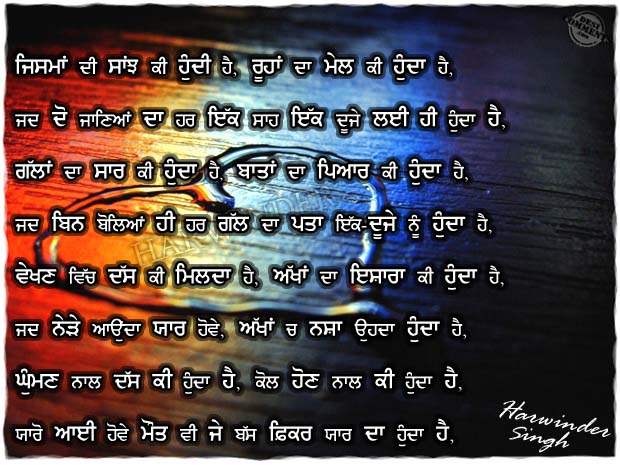 DESI COMMENT .com
ਜਿਸਮਾਂ ਦੀ ਸਾਂਝ ਕੀ ਹੁੰਦੀ ਹੈ, ਰੂਹਾਂ ਦਾ ਮੇਲ ਕੀ ਹੁੰਦਾ ਹੈ,
ਜਦ ਦੋ ਜਾਣਿਆਂ ਦਾ ਹਰ ਇੱਕ ਸਾਹ ਇੱਕ ਦੂਜੇ ਲਈ ਹੀ ਹੁੰਦਾ ਹੈ,
ਗੱਲਾਂ ਦਾ ਸਾਰ ਕੀ ਹੁੰਦਾ ਹੈ, ਬਾਤਾਂ ਦਾ ਪਿਆਰ ਕੀ ਹੁੰਦਾ ਹੈ,
ਜਦ ਬਿਨ ਬੋਲਿਆਂ ਹੀ ਹਰ ਗੱਲ ਦਾ ਪਤਾ ਇੱਕ-ਦੂਜੇ ਨੂੰ ਹੁੰਦਾ ਹੈ,
ਵੇਖਣ ਵਿੱਚ ਦੱਸ ਕੀ ਮਿਲਦਾ ਹੈ, ਅੱਖਾਂ ਦਾ ਇਸ਼ਾਰਾ ਕੀ ਹੁੰਦਾ ਹੈ,
ਜਦ ਨੇੜੇ ਆਉਂਦਾ ਯਾਰ ਹੋਵੇ, ਅੱਖਾਂ ਚ ਨਸ਼ਾ ਉਹਦਾ ਹੁੰਦਾ ਹੈ,
ਘੁੰਮਣ ਨਾਲ ਦੱਸ ਕੀ ਹੁੰਦਾ ਹੈ, ਕੋਲ ਹੋਣ ਨਾਲ ਕੀ ਹੁੰਦਾ ਹੈ,
ਯਾਰੋ ਆਈ ਹੋਵੇ ਮੌਤ ਵੀ ਜੇ ਬੱਸ ਫ਼ਿਕਰ ਯਾਰ ਦਾ ਹੁੰਦਾ ਹੈ,
Harwinder
Singh